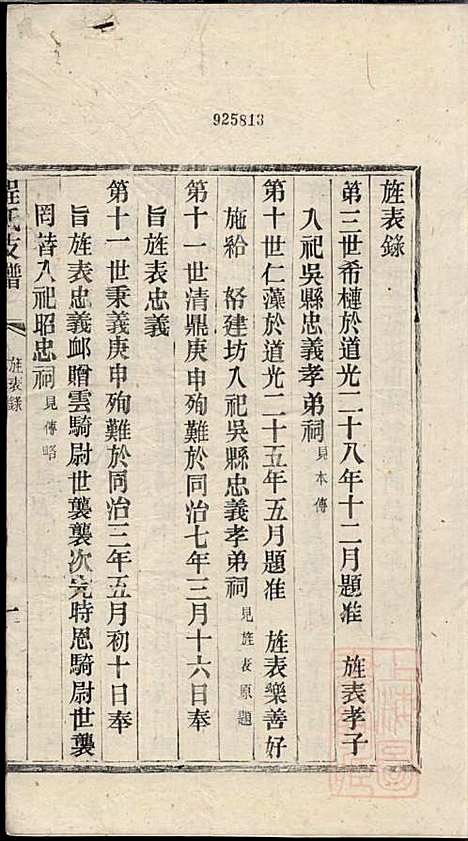 925813
旌表錄
第三世希槤於道光二十八年十二月題准 旌表孝子
入祀吳縣忠義孝弟祠 見本傳
第十世仁藻於道光二十五年五月題准 旌表樂善好
施給 帑建坊入祀吳縣忠義孝弟祠 見旌表原題
第十一世清鼎庚申殉難於同治七年三月十六日奉
旨旌表忠義
第十一世秉義庚申殉難於同治三年五月初十日奉
旨旌表忠義卹贈雲騎尉世襲襲次完時恩騎尉世襲
罔替入祀昭忠祠 見傳略
程氏支譜
旌表錄
一